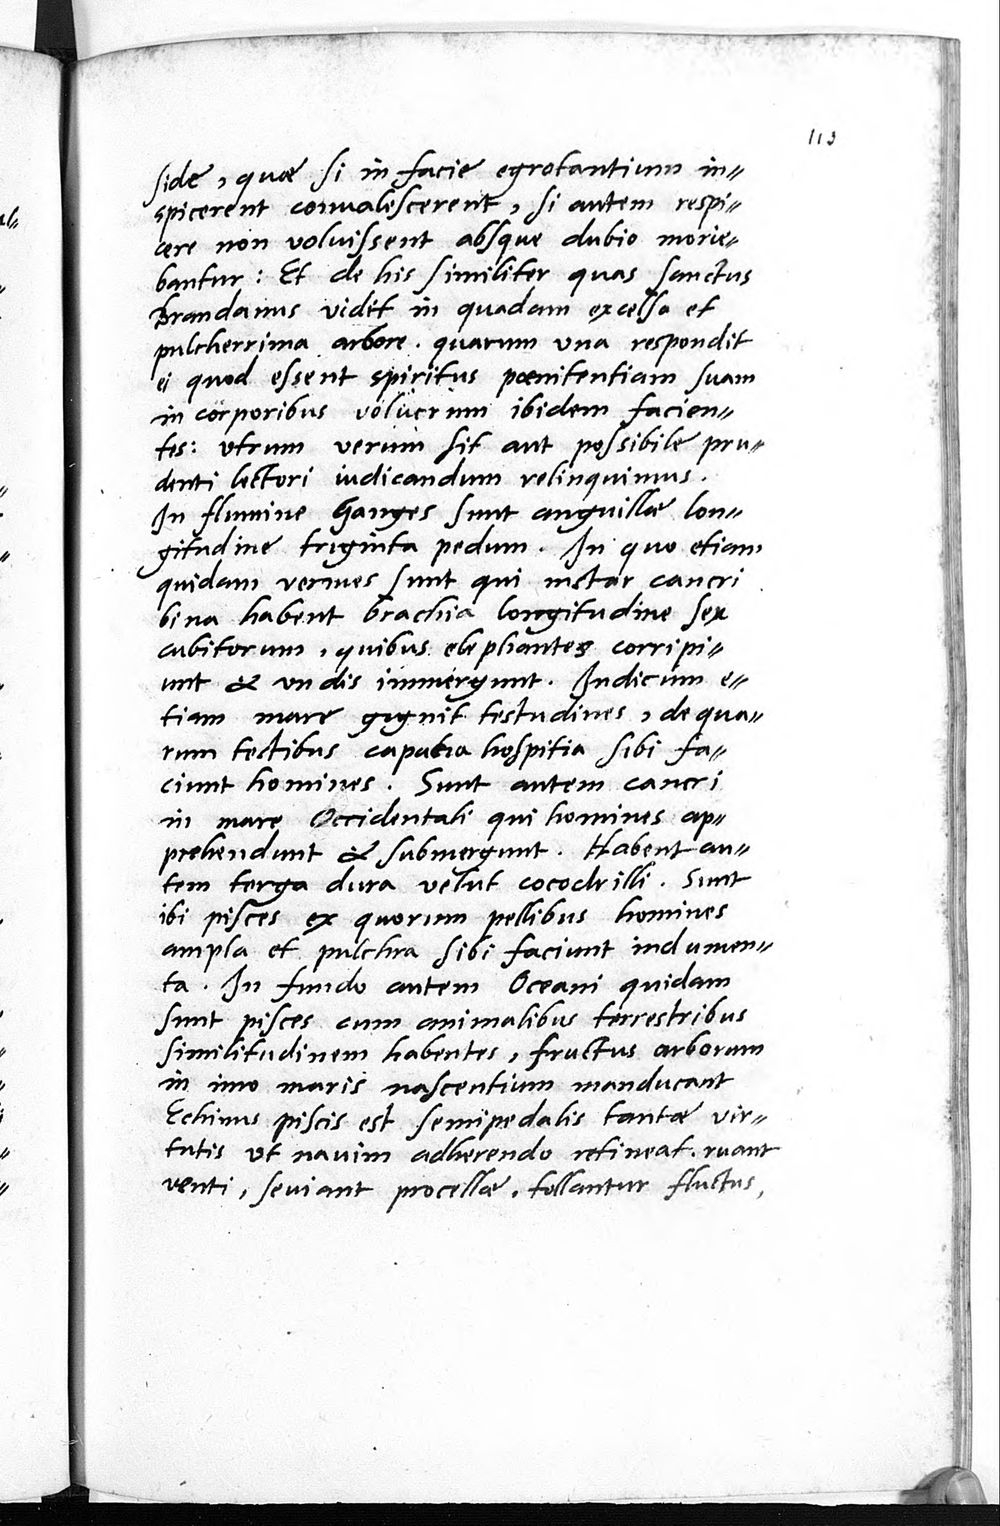 113
side, quæ si in facie egrotantium in=
spicerent conualescerent, si autem respi=
cere non voluissent absque dubio morie=
bantur: Et de his similiter quas sanctus
Brandanus vidit in quadam excelsa et
pulcherrima arbore. quarum vna respondit
ei quod essent spiritus pœnitentiam suam
in corporibus volucrum ibidem facien=
tes: vtrum verum sit aut possibile pru=
denti lectori iudicandum relinquimus.
In flumine Ganges sunt anguillæ lon=
gitudine triginta pedum. In quo etiam
quidam vermes sunt qui instar cancri
bina habent brachia longitudine sex
cubitorum, quibus elephantes corripi=
unt & vndis immergunt. Indicum e=
tiam mare gignit testudines, de qua=
rum tectibus capatia hospitia sibi fa=
ciunt homines. Sunt autem cancri
in mare Occidentali qui homines ap=
prehendunt & submergunt. Habent au=
tem terga dura velut cocodrilli. Sunt
ibi pisces ex quorum pellibus homines
ampla et pulchra sibi faciunt indumen=
ta. In fundo autem Oceani quidam
sunt pisces cum animalibus terrestribus
similitudinem habentes, fructus arborum
in imo maris nascentium manducant
Echinus piscis est semipedalis tantæ vir=
tutis vt nauim adherendo retineat. ruant
venti, seuiant procellæ, tollantur fluctus,